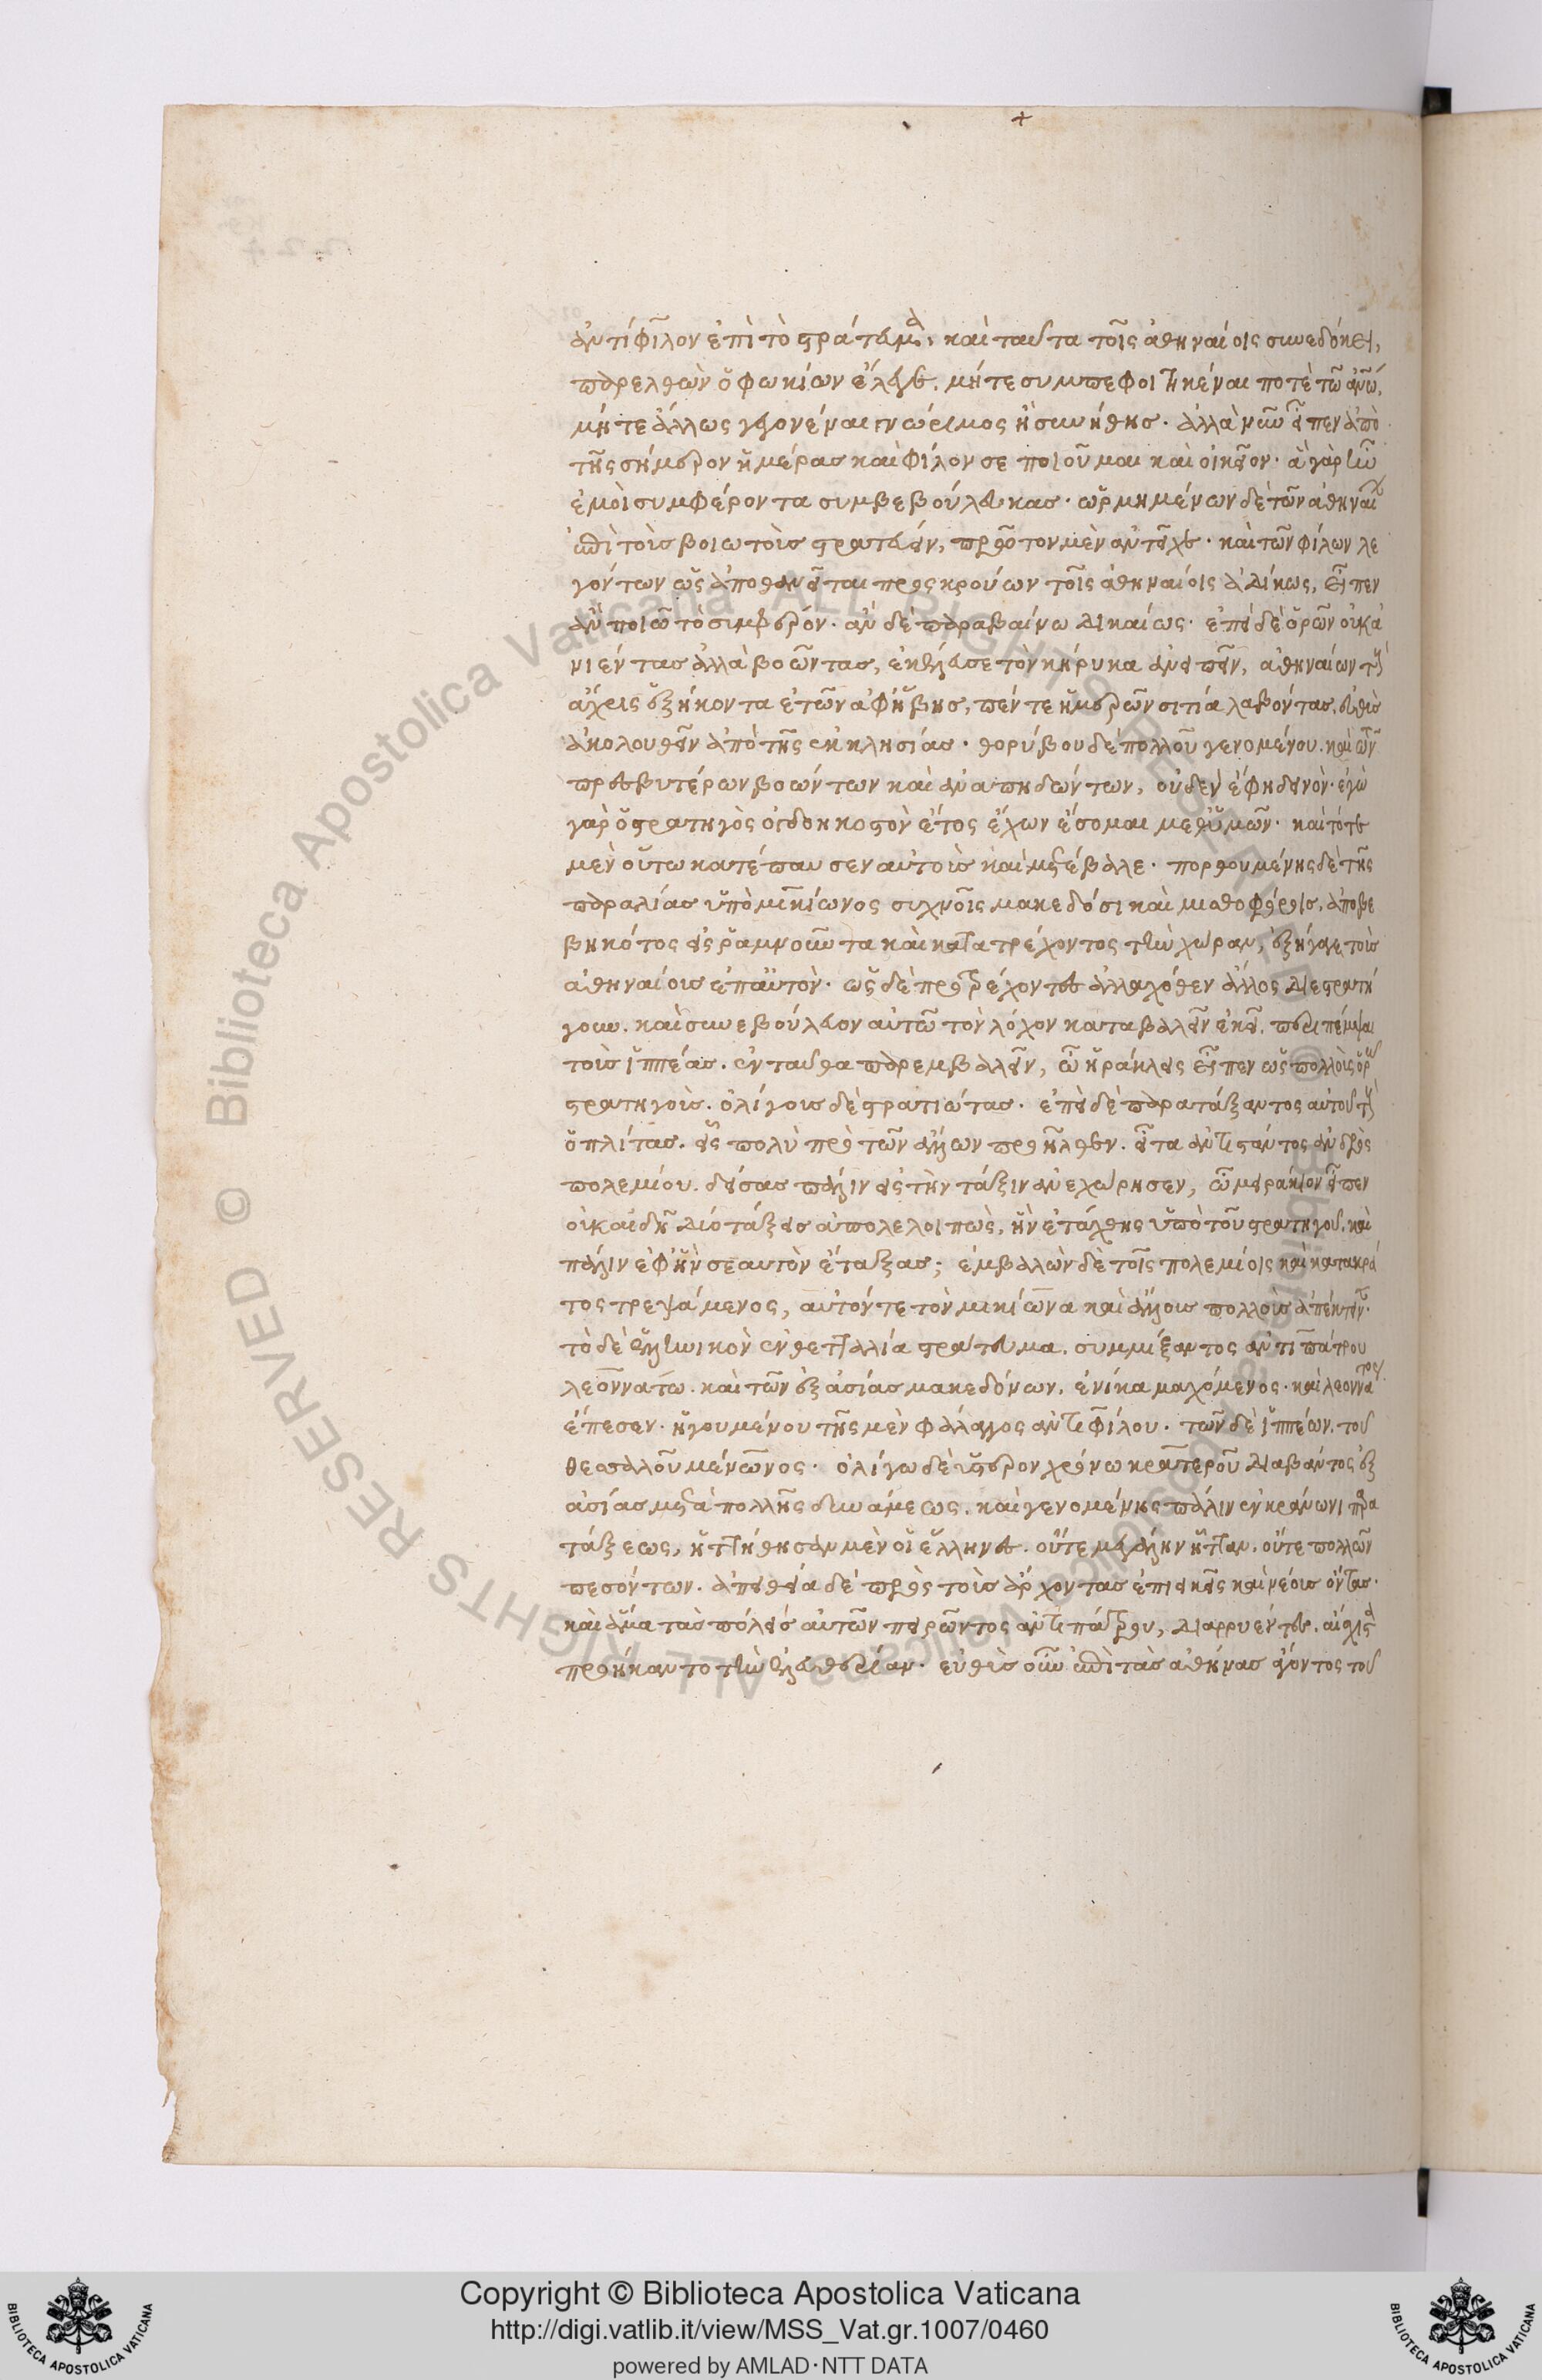 ἀντίφιλον ἐπὶ τὸ στράτευμα, καὶ ταῦτα τοῖς ἀθηναίοις συνεδόκει,
παρελθὼν ὁ φωκίων ἔλεγε. μήτε συμπεφοιτηκέναι ποτὲ τῶ ἀνθρώπω,
μήτε ἄλλως γεγονέναι γνώριμος ἢ συνήθης. ἀλλὰ νῦν εἶπεν ἀπὸ
τῆς σήμερον ἡμέρας καὶ φίλον σε ποιοῦμαι καὶ οἰκεῖον. ἃ γὰρ ἦν
ἐμοὶ συμφέροντα συμβεβούλευκας. ὡρμημένων δὲ τῶν ἀθηναίων
ἐπὶ τοὺς βοιωτοὺς στρατεύειν, πρῶτον μὲν ἀντεῖχε. καὶ τῶν φίλων λε
γόντων ὡς ἀποθανεῖται προσκρούων τοῖς ἀθηναίοις ἀδίκως, εἶπεν
ἂν ποιῶ τὸ συμφέρον. ἂν δὲ παραβαίνω δικαίως. ἐπεὶ δὲ ὁρῶν οὐκ ἀ
νιέντας ἀλλὰ βοῶντας, ἐκέλευσε τὸν κήρυκα ἀνειπεῖν, ἀθηναίων τοὺς
ἄχρις ἑξήκοντα ἐτῶν ἀφ' ἥβης, πέντε ἡμερῶν σιτία λαβόντας, εὐθὺς
ἀκολουθεῖν ἀπὸ τῆς ἐκκλησίας. θορύβου δὲ πολλοῦ γενομένου. καὶ τῶν
πρεσβυτέρων βοώντων καὶ ἀναπηδώντων, οὐδὲν ἔφη δεινόν. ἐγὼ
γὰρ ὁ στρατηγὸς ὀγδοηκοστὸν ἔτος ἔχων ἔσομαι μεθ' ὑμῶν. καὶ τότε
μὲν οὕτω κατέπαυσεν αὐτοὺς καὶ μετέβαλε. πορθουμένης δὲ τῆς
παραλίας ὑπὸ μικίωνος συχνοῖς μακεδόσι καὶ μισθοφόροις, ἀποβε
βηκότος εἰς ῥαμνοῦντα καὶ κατατρέχοντος τὴν χώραν, ἐξήγαγε τοὺς
ἀθηναίους ἐπ' αὐτόν. ὡς δὲ προστρέχοντες ἀλλαχόθεν ἄλλος διεστρατή
γουν. καὶ συνεβούλευον αὐτῶ τὸν λόχον καταβαλεῖν ἐκεῖ. περιπέμψαι
τοὺς ἱππέας. ἐνταῦθα παρεμβαλεῖν, ὦ ἡράκλεις εἶπεν ὡς πολλοὺς ὁρῶ
στρατηγοὺς. ὀλίγους δὲ στρατιώτας. ἐπεὶ δὲ παρατάξαντος αὐτοῦ τοὺς
ὁπλίτας. εἷς πολὺ πρὸ τῶν ἄλλων προῆλθεν. εἶτα ἀντιστάντος ἀνδρὸς
πολεμίου. δείσας πάλιν εἰς τὴν τάξιν ἀνεχώρησεν, ὦ μειράκιον εἶπεν
οὐκ αἰδῆ δύο τάξεις ἀπολελοιπὼς, ἣν ἐτάχθης ὑπὸ τοῦ στρατηγοῦ. καὶ
πάλιν ἐφ' ἣν σεαυτὸν ἔταξας; ἐμβαλὼν δὲ τοῖς πολεμίοις καὶ κατακρά
τος τρεψάμενος, αὐτόν τε τὸν μικίωνα καὶ ἄλλους πολλοὺς ἀπέκτεινεν.
τὸ δὲ ἑλληνικὸν ἐν θετταλία στράτευμα. συμμίξαντος ἀντιπάτρου
λεοννάτω. καὶ τῶν ἐξ ἀσίας μακεδόνων, ἐνίκα μαχόμενος. καὶ λεοννάτος
ἔπεσεν. ἡγουμένου τῆς μὲν φάλαγγος ἀντιφίλου. τῶν δὲ ἱππέων. τοῦ
θεσσαλοῦ μένωνος. ὀλίγω δὲ ὕστερον χρόνω κρατεροῦ διαβάντος ἐξ
ἀσίας μετὰ πολλῆς δυνάμεως. καὶ γενομένης πάλιν ἐν κρανῶνι παρα
τάξεως, ἡττήθησαν μὲν οἱ ἕλληνες. οὔτε μεγάλην ἧτταν. οὔτε πολλῶν
πεσόντων. ἀπειθεία δὲ πρὸς τοὺς ἄρχοντας ἐπιεικεῖς καὶ νέους ὄντας.
καὶ ἅμα τὰς πόλεις αὐτῶν πειρῶντος ἀντιπάτρου, διαρρυέντες. αἴσχιστα
προήκαντο τὴν ἐλευθερίαν. εὐθὺς οὖν ἐπὶ τὰς ἀθήνας ἄγοντος τοῦ
Copyright © Biblioteca Apostolica Vaticana
http://digi.vatlib.it/view/MSS_Vat.gr.1007/0460
powered by AMLAD·NTT DATA